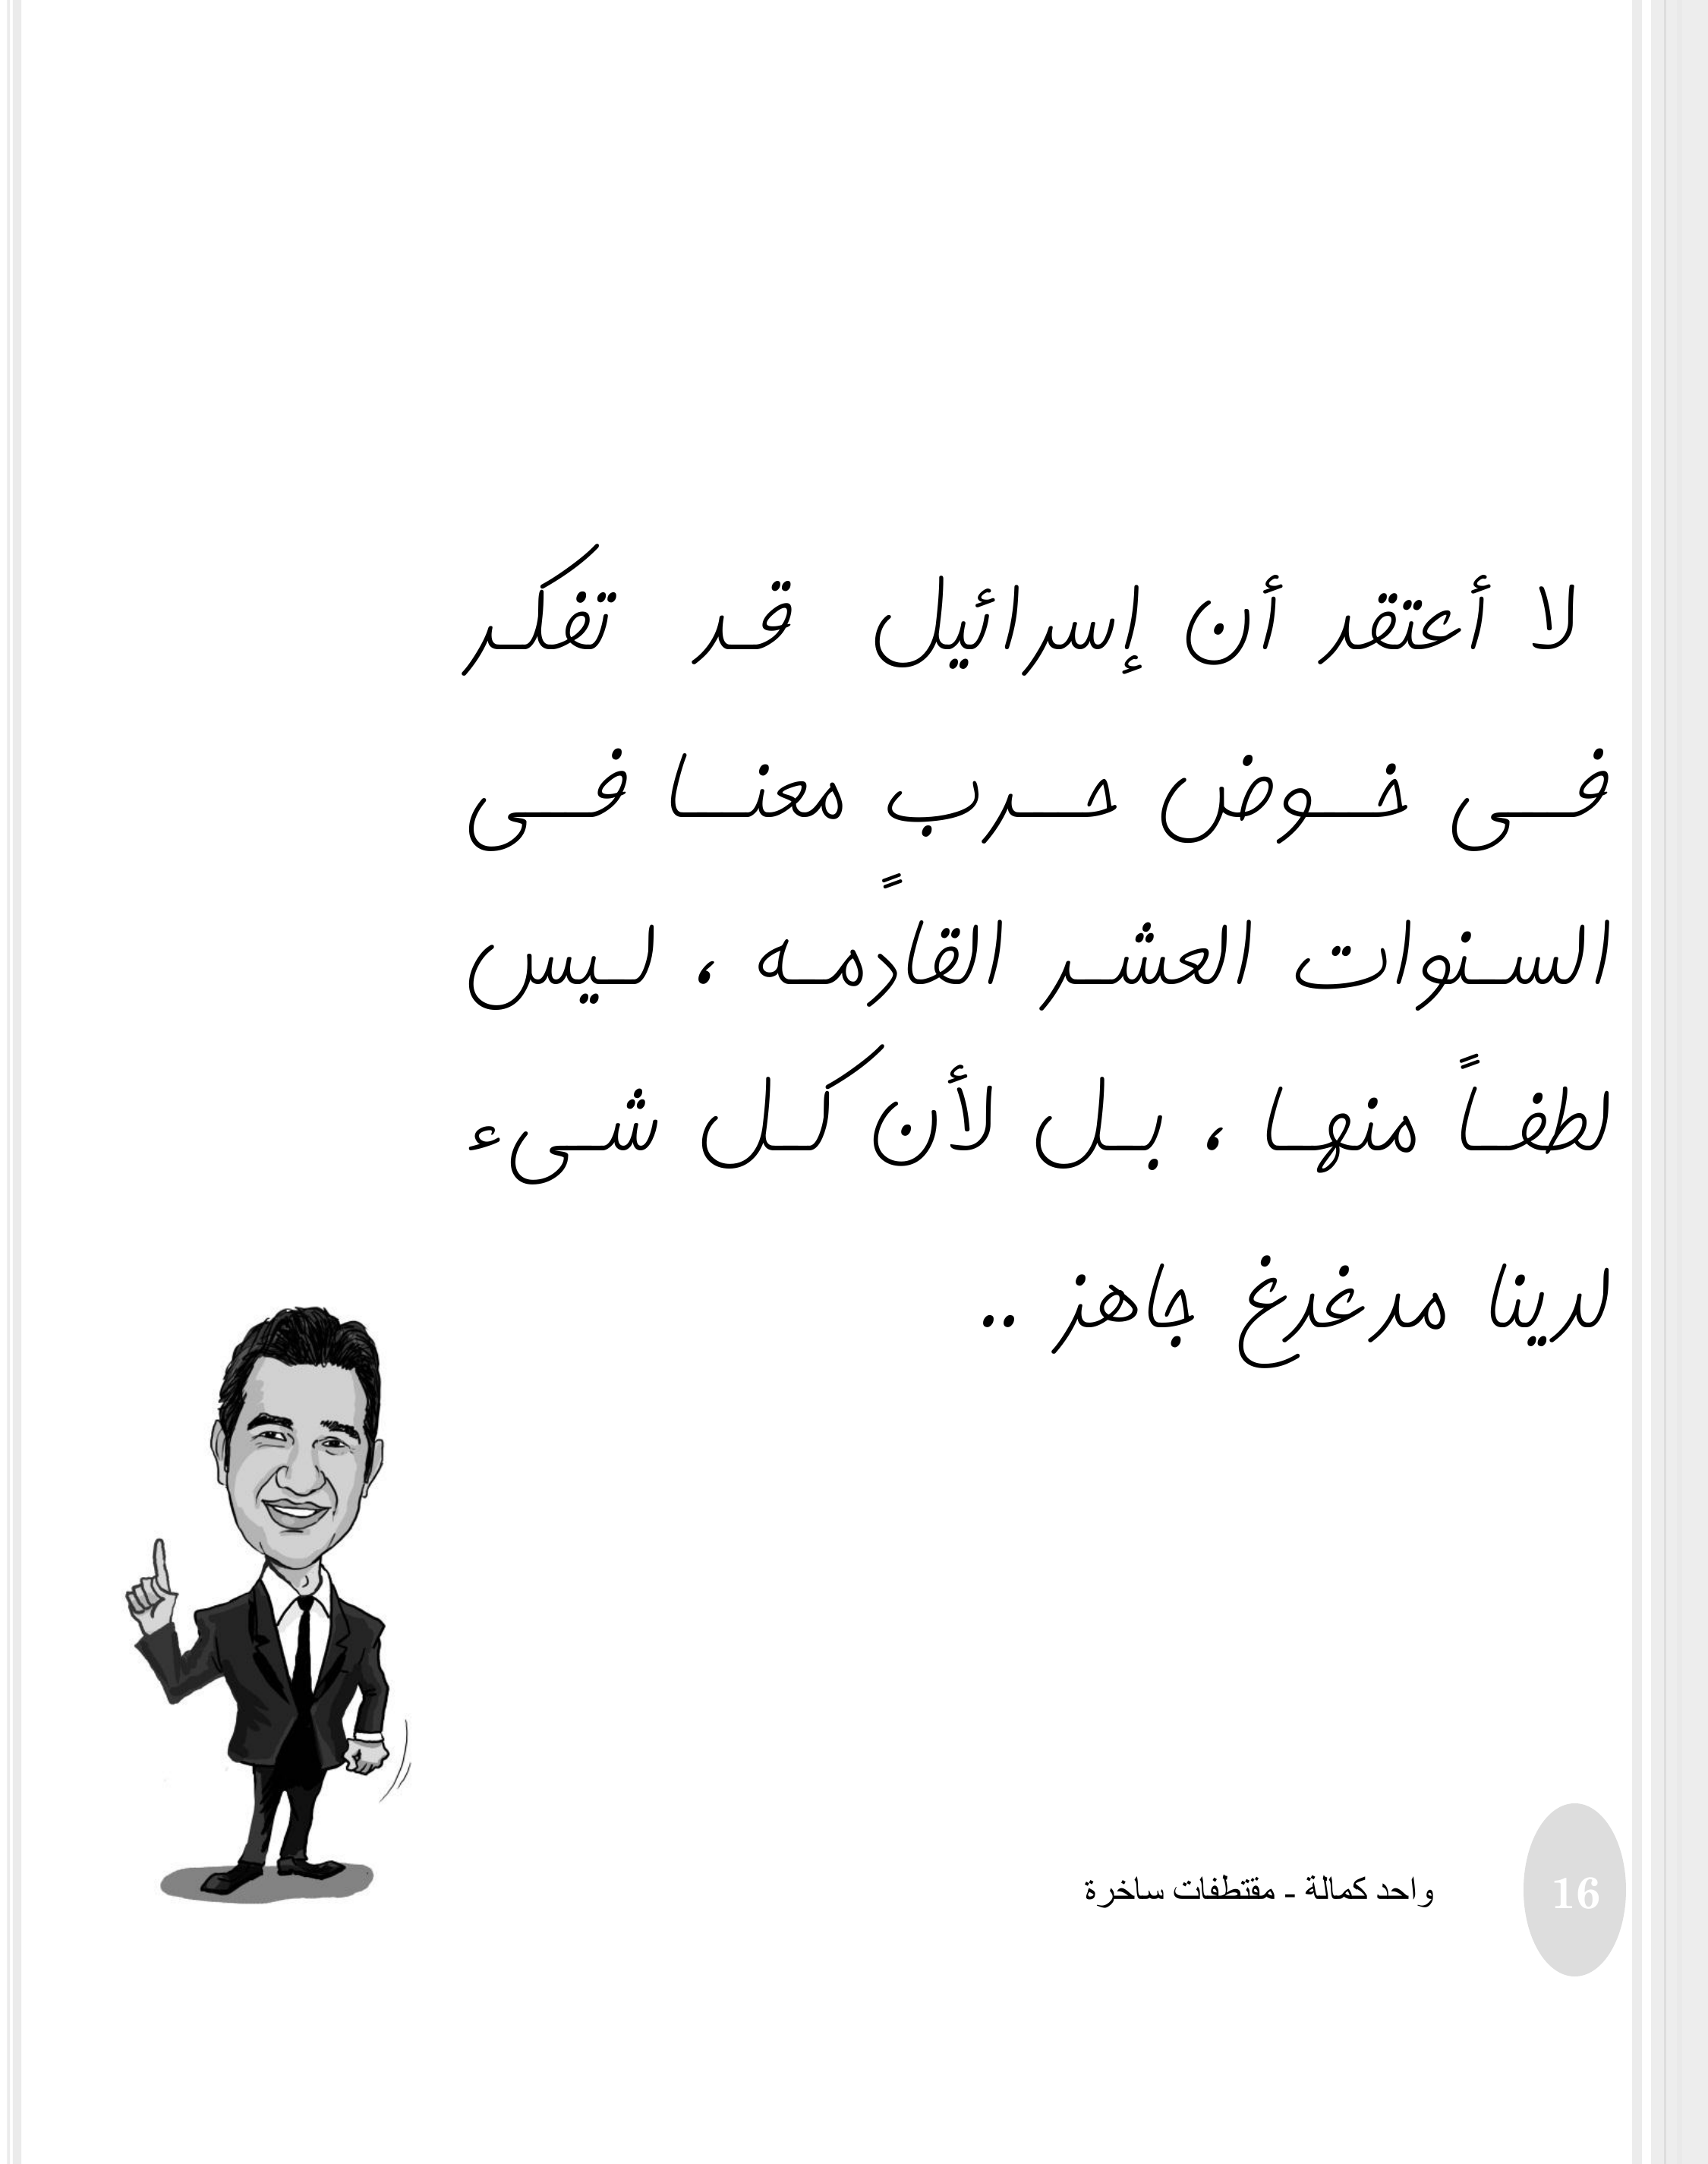 لا أعتقد أن إسرائيل قد تفكر
فى خوض حرب معنا فى
السنوات العشر القادمه ، ليس
لطفاً منها ، بل لأن كل شىء
لدينا مدغدغ جاهز ..
واحد كمالة - مقتطفات ساخرة
16